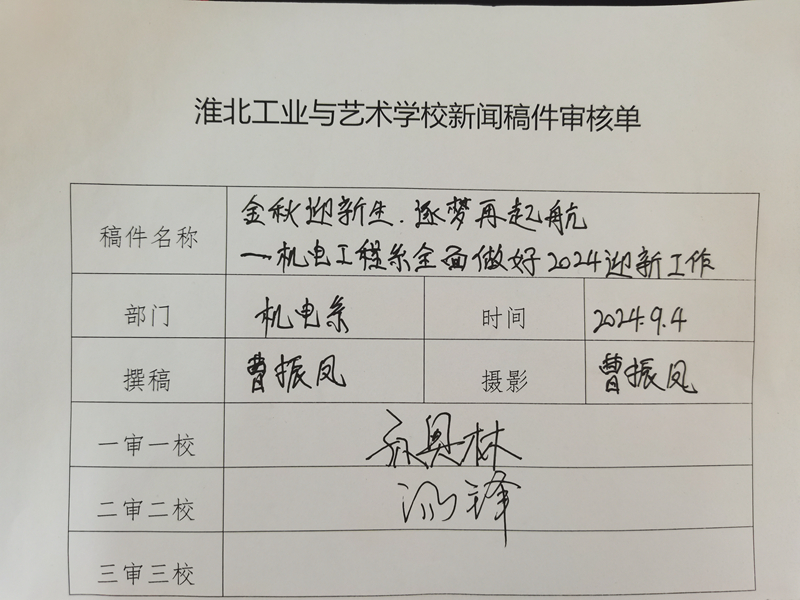 淮北工业与艺术学校新闻稿件审核单
稿件名称
金秋迎新生.逐梦再起航
—机电工程系全面做好2024迎新工作
部门 机电系 时间 2024.9.4
撰稿 曹振凤 摄影 曹振凤
一审一校
二审二校
三审三校